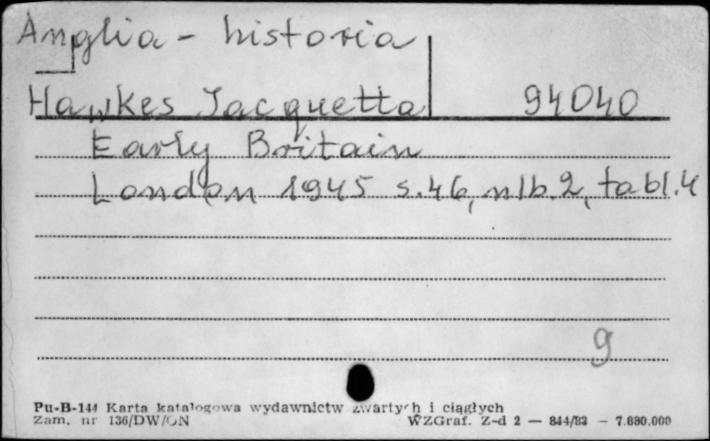 Anglia - historia
Hawkes Jacquetta 94040
Early Britain
London 1945 s.46, nlb.2, tabl.4
9
Pu-B-144 Karta katalogowa wydawnictw zwartych i ciągłych
Zam. nr 136/DW/ON WZGraf. Z-d 2 — 844/83 — 7.880.000